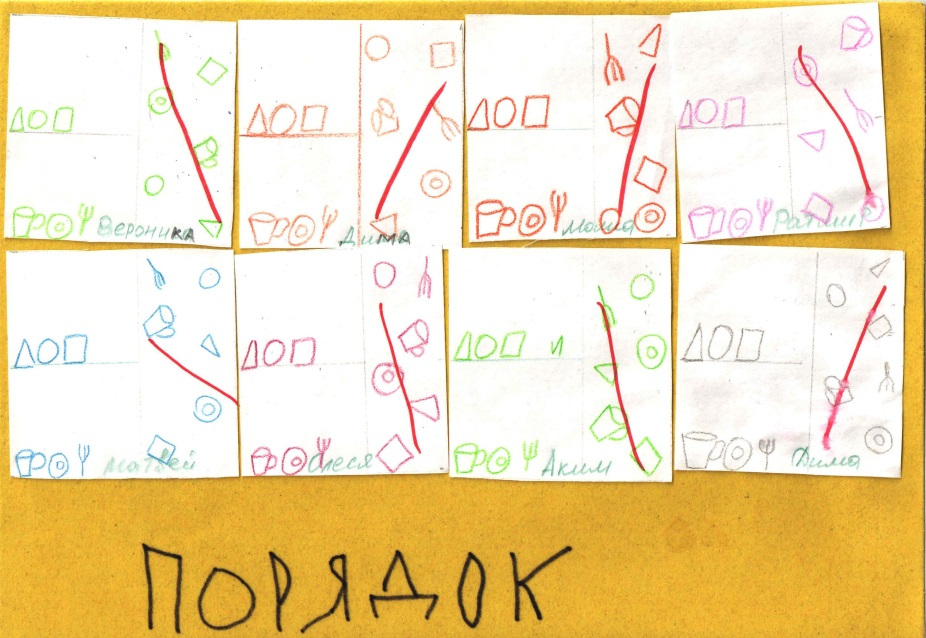 Вероника
Дима
Ратмир
Матвей
Олеся
и
Аким
Дима
ПОРЯДОК